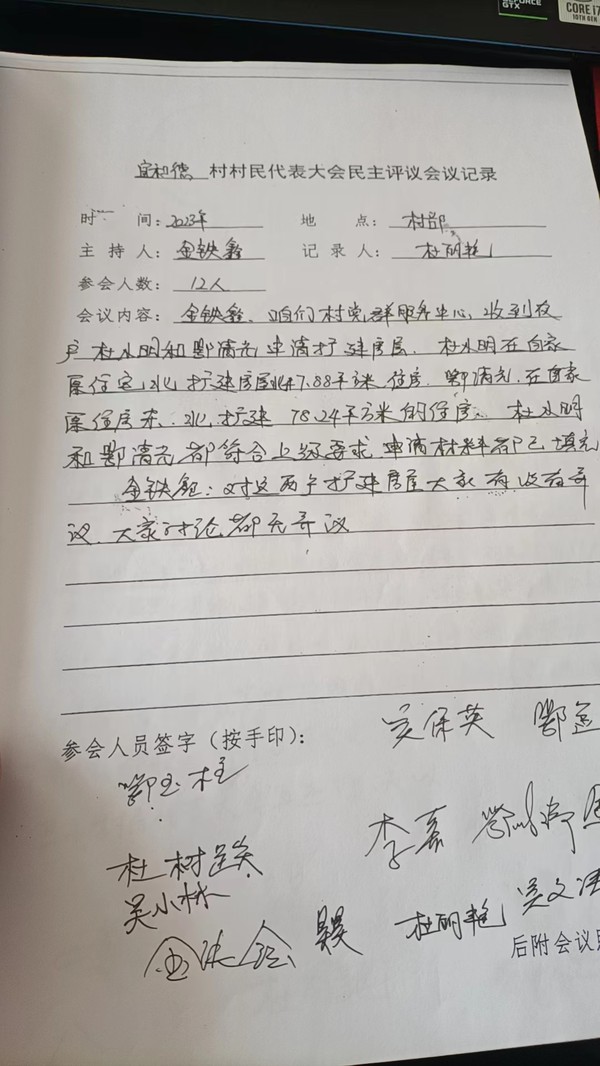 GEFORCE
GTX
CORE i7
10TH GEN
宜和德 村村民代表大会民主评议会议记录
时 间: 2023年 地 点: 村部
主 持 人: 金铁鑫 记 录 人: 杜丽艳
参会人数: 12人
会议内容: 金铁鑫、咱们村党群服务中心, 收到农
户杜小明和鄂满元申请扩建房屋. 杜小明在自家
原住宅, 北扩建房屋47.88平方米住房. 鄂满元, 在自家
原住房东、北, 扩建 78.24平方米的住房. 杜小明
和鄂满元都符合上级要求 申请材料都已填完
金铁鑫: 对这两户扩建房屋大家有没有异
议. 大家讨论都无异议
参会人员签字(按手印):
吴保英 鄂
鄂玉柱
李嘉
杜树
吴小林
杜丽艳 吴文
后附会议